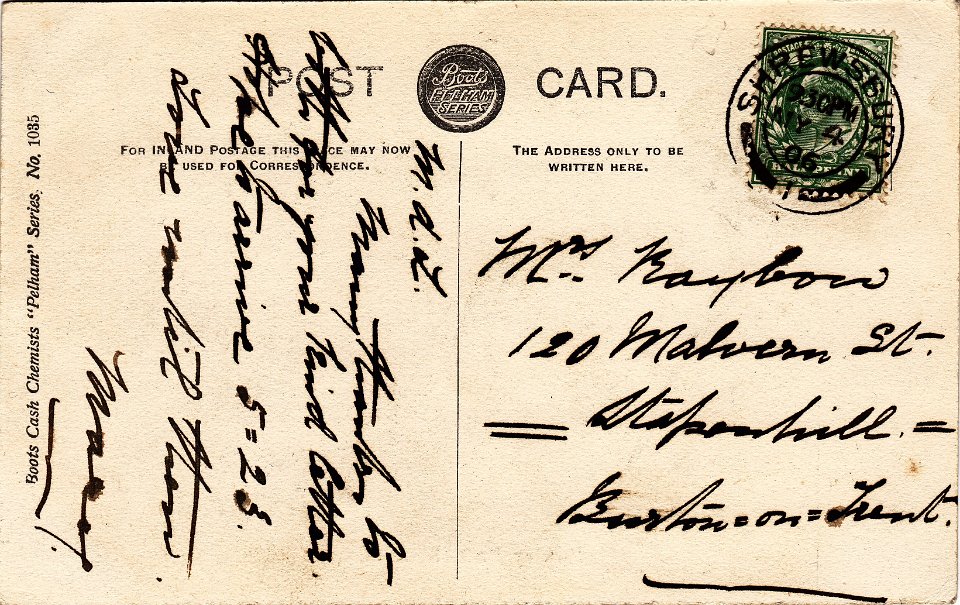 POST CARD.
Boots
PELHAM
SERIES
FOR INLAND POSTAGE THIS SPACE MAY NOW
BE USED FOR CORRESPONDENCE.
THE ADDRESS ONLY TO BE
WRITTEN HERE.
SHREWSBURY
230PM
MY 4
06
Boots Cash Chemists "Pelham" Series. No. 1035
Many thanks to
both for your kind letter.
Hope to arrive 5=25.
Love until then
Mrs. Raybou
120 Malvern St.
Stapenhill.=
Burton=on=Trent.